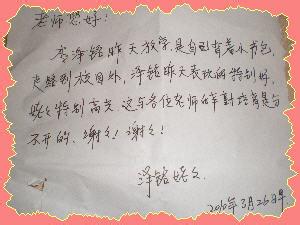 老师您好:
李泽铭昨天放学是自己背着小书包
走路到校外,泽铭昨天表现的特别好,
姥々特别高兴 这与各位老师的辛勤培育是分
不开的。谢々!谢々!
泽铭姥々
2010年3月26日早